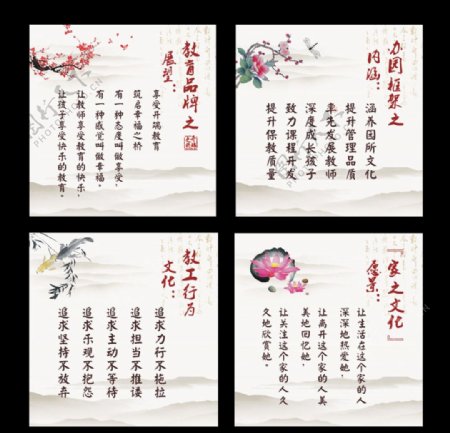 教育品牌之
展望：
享受开瑞教育
筑启幸福之桥
有一种态度叫做享受，
有一种感觉叫做幸福。
让教师享受教育的快乐，
让孩子享受快乐的教育。
办园框架之
内涵：
涵养园所文化
提升管理品质
率先发展教师
深度成长孩子
致力课程开发
提升保教质量
教工行为
文化：
追求力行不拖拉
追求担当不推诿
追求主动不等待
追求乐观不抱怨
追求坚持不放弃
『家之文化』
愿景：
让生活在这个家的人
深深地热爱她，
让离开这个家的人美
美地回忆她，
让关注这个家的人久
久地欣赏她。